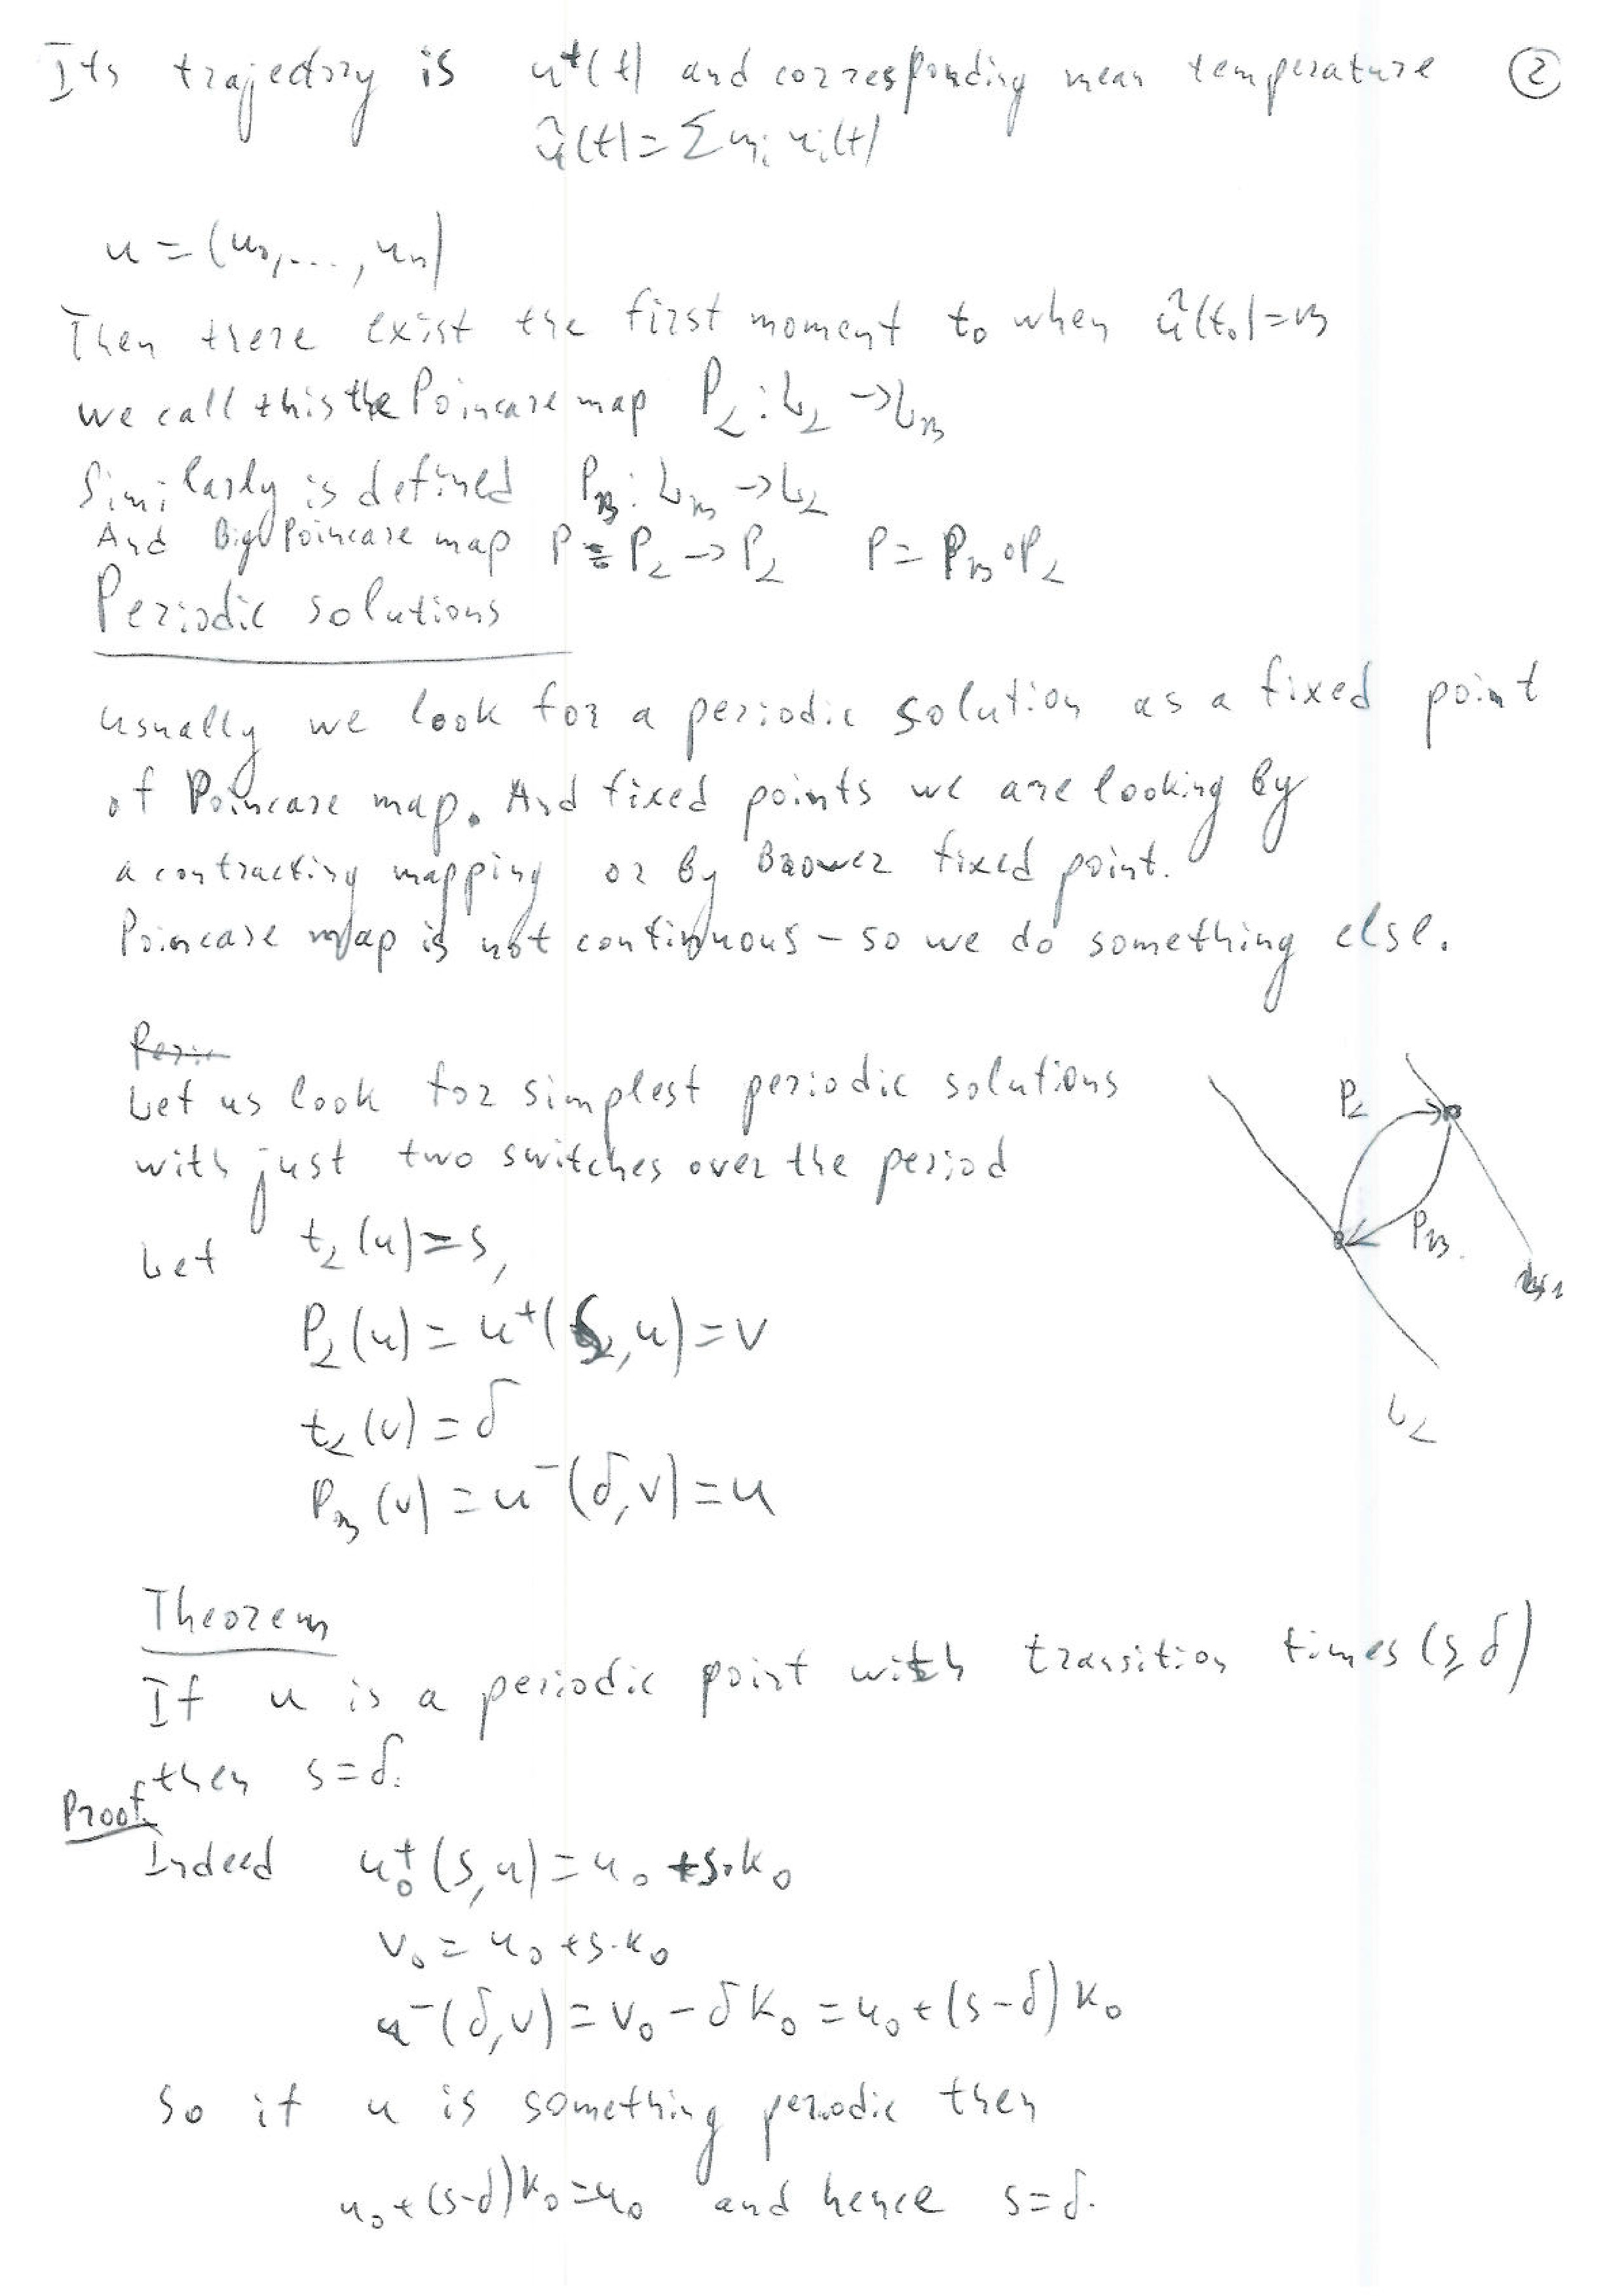 Its trajectory is u⁺(t) and corresponding mean temperature ②
û(t) = Σ mᵢ uᵢ(t)
u = (u₀, ..., uₙ)
Then there exist the first moment t₀ when û(t₀) = β
we call this the Poincare map P_α : L_α → L_β
Similarly is defined P_β : L_β → L_α
And Big Poincare map P = P_α → P_α P = P_β ∘ P_α
Periodic solutions
usually we look for a periodic solution as a fixed point
of Poincare map. And fixed points we are looking by
a contracting mapping or by Brower fixed point.
Poincare map is not continuous - so we do something else.
Let us look for simplest periodic solutions
with just two switches over the period
P_α
P_β
L_α
Let t_α(u) = s,
P_α(u) = u⁺(s, u) = v
t_α(v) = δ
P_β(v) = u⁻(δ, v) = u
Theorem
If u is a periodic point with transition times (s, δ)
then s = δ.
Proof
Indeed u₀⁺(s, u) = u₀ + s·k₀
v₀ = u₀ + s·k₀
u⁻(δ, v) = v₀ - δ k₀ = u₀ + (s - δ) k₀
So if u is something periodic then
u₀ + (s - δ) k₀ = u₀ and hence s = δ.